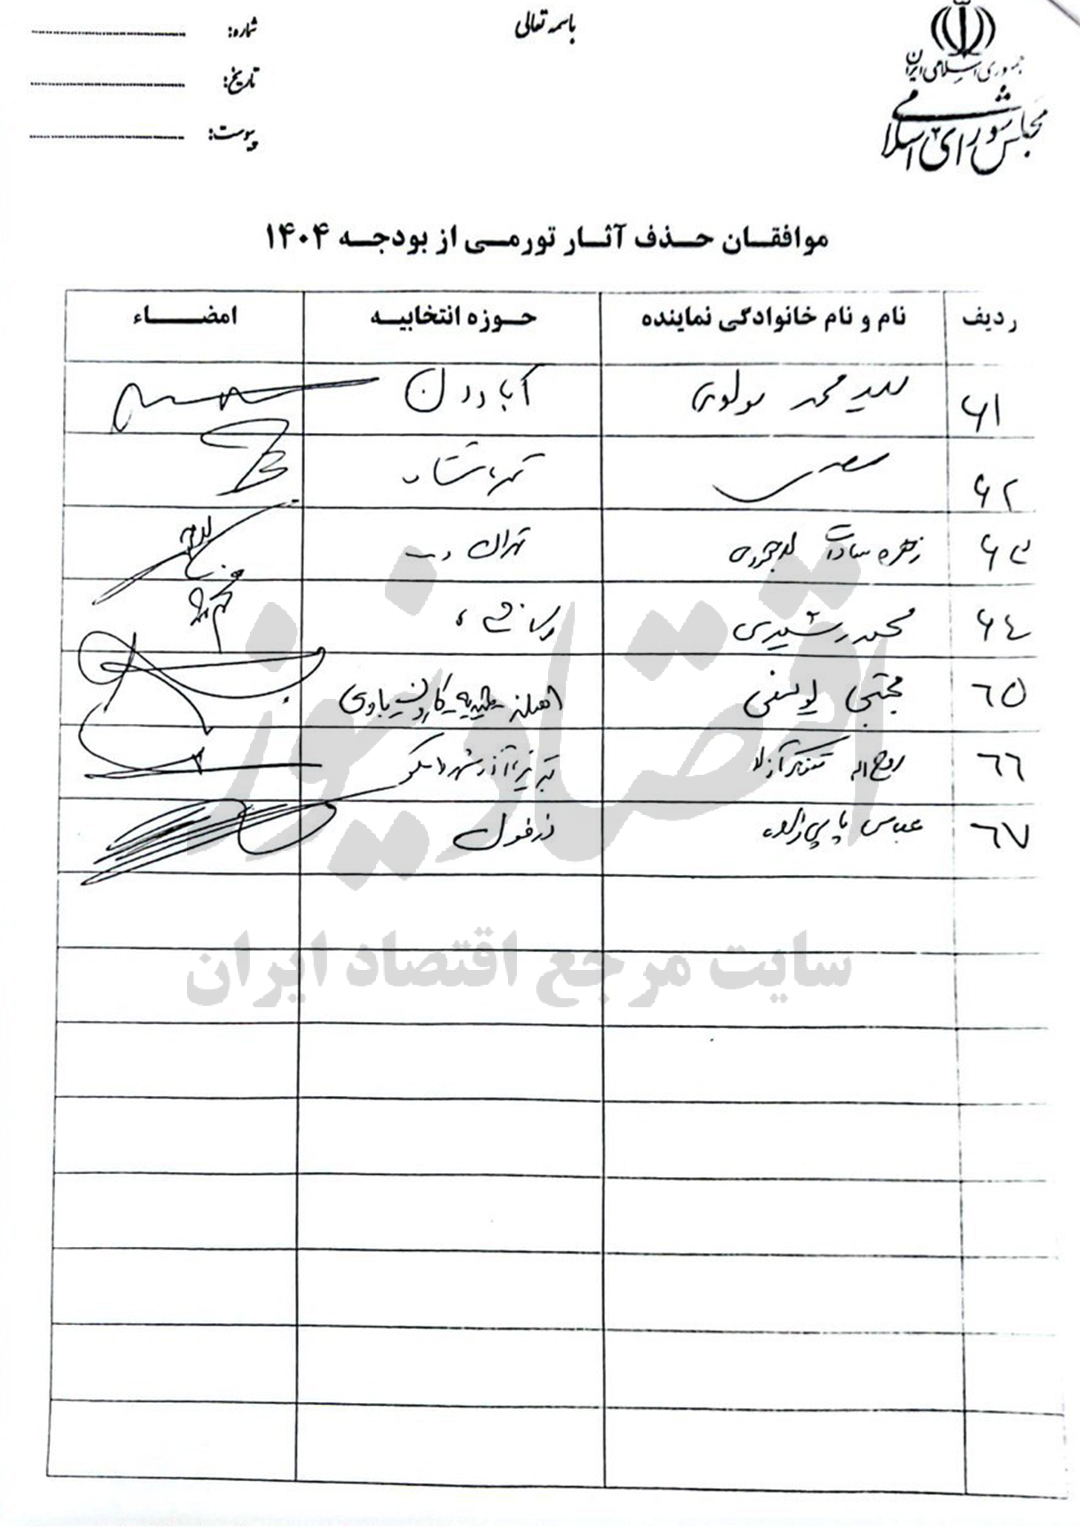 باسمه تعالی
جمهوری اسلامی ایران
مجلس شورای اسلامی
شماره:
تاریخ:
پیوست:
موافقان حذف آثار تورمی از بودجه ۱۴۰۴
ردیف نام و نام خانوادگی نماینده حوزه انتخابیه امضاء
۶۱ سید محمد مولوی آبادان
۶۲
۶۳ زهره سادات لاجوردی تهران
۶۴ محمد رشیدی کرمانشاه
۶۵ مجتبی یوسفی اهواز حمیدیه کارون باوی
۶۶ روح اله متفکر آزاد تبریز، آذرشهر و اسکو
۶۷ عباس پاپی زاده دزفول
اقتصاد نیوز
سایت مرجع اقتصاد ایران